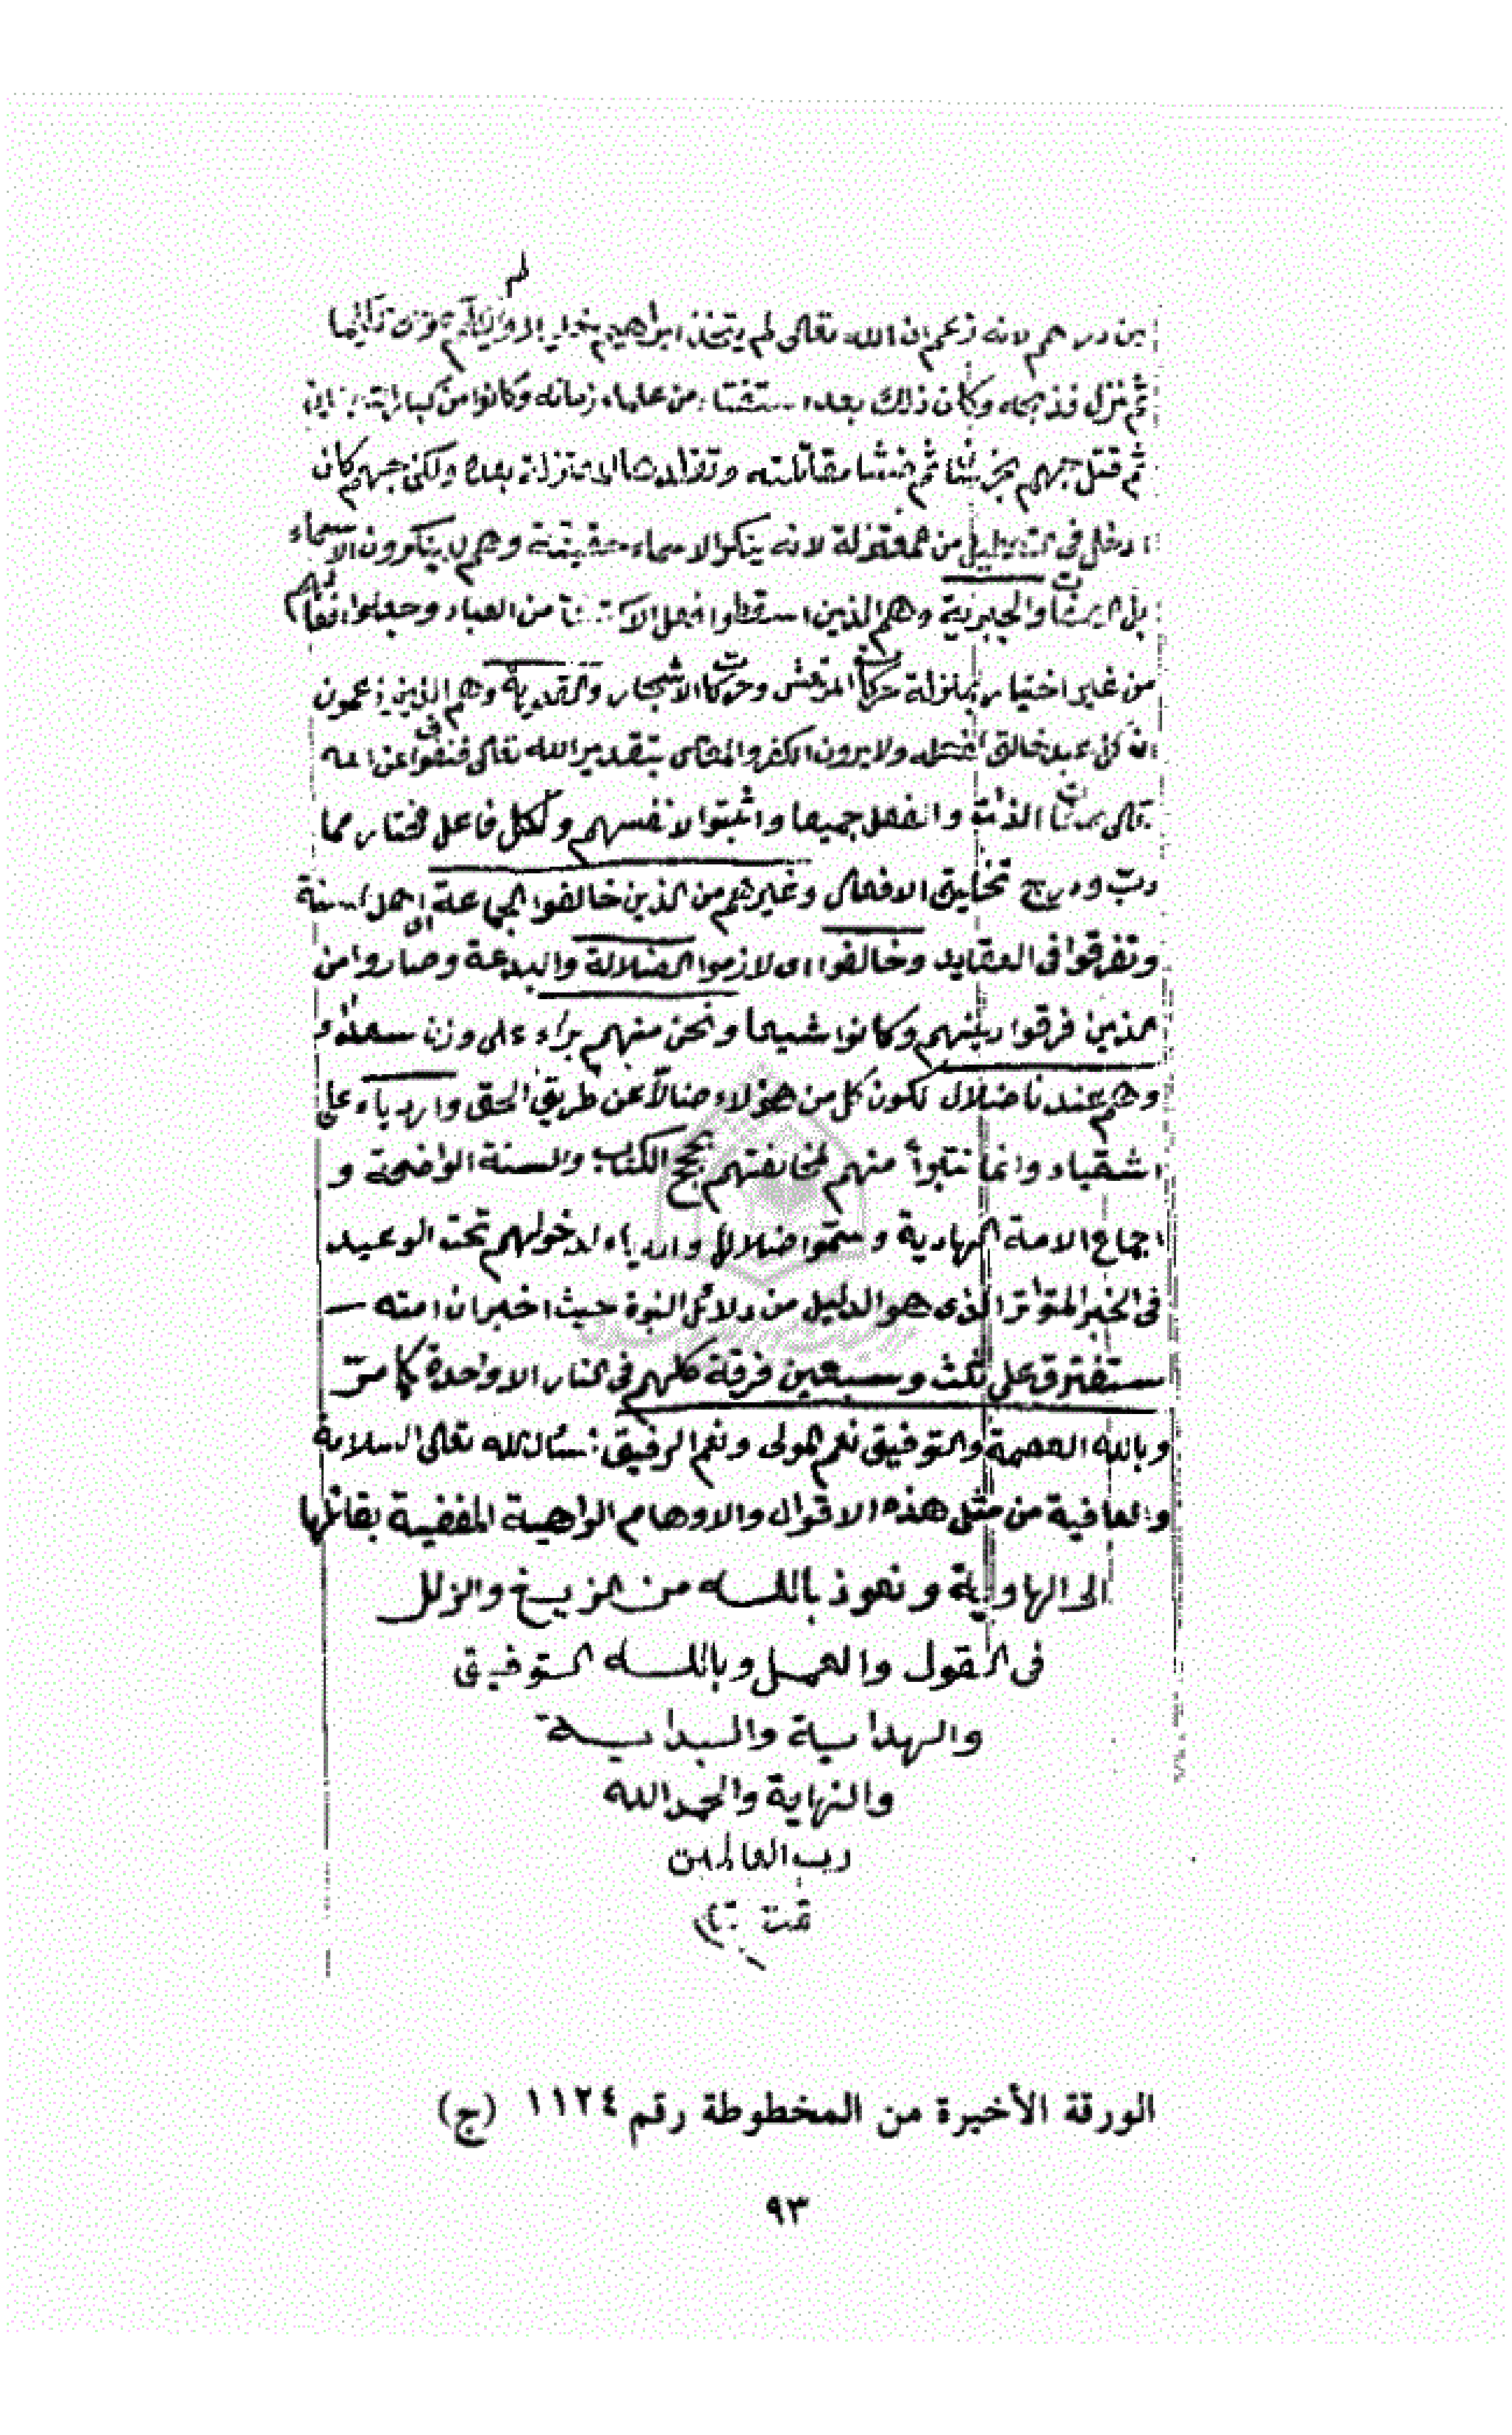 بن درهم لانه زعم ان الله تعالى لم يتخذ ابراهيم خليلا ولم يكلم موسى تكليما
ثم نزل فذبحه وكان ذلك بعد استفتاء من علماء زمانه وكانوا من
ثم قتل جهم ثم فشا مقالته وتقلدها المعتزلة بعده ولكن جهم كان
ادخل فى التعطيل من المعتزلة لانه ينكر الاسماء حقيقة وهم لا ينكرون الاسماء
بل الصفات والجبرية وهم الذين اسقطوا فعل من العباد وجعلوا افعالهم
من غير اختيار بمنزلة حركات المرتعش وحركات الاشجار والقدرية وهم الذين زعمون
ان كل عبد خالق لفعله ولا يرون الكفر والمعاصى بتقدير الله تعالى فنفوا عن الله
تعالى صفات الذات والفعل جميعا واثبتوا لانفسهم ولكل فاعل مختار مما
دبّ ودرج تخليق الافعال وغيرهم من الذين خالفوا الجماعة اى اهل السنة
وتفرقوا فى العقايد وخالفوا اى لازموا الضلالة والبدعة وصاروا من
الذين فرقوا دينهم وكانوا شيعا ونحن منهم براء على وزن سعداء
وهم عندنا ضلال لكون كل من هؤلاء ضالاً عن طريق الحق واردياء على
اشقياء وانما نتبرأ منهم لمخالفتهم بحجج الكتاب والسنة الواضحة و
اجماع الامة الهادية وسموا ضلالا وارديا لدخولهم تحت الوعيد
فى الخبر المتواتر الذى هو الدليل من دلائل النبوة حيث اخبر ان امته
ستفترق على ثلث وسبعين فرقة كلهم فى النار الا واحدة كما مرّ
وبالله العصمة والتوفيق نعم المولى ونعم الرفيق نسئال الله تعالى السلامة
والعافية من مثل هذه الاقوال والاوهام الواهية المفضية بقائلها
الى الهاوية ونعوذ بالله من الزيغ والزلل
فى القول والعمل وبالله التوفيق
والهداية والبداية
والنهاية والحمد الله
رب العالمين
تمت
الورقة الأخيرة من المخطوطة رقم ١١٢٤ (ج)
٩٣